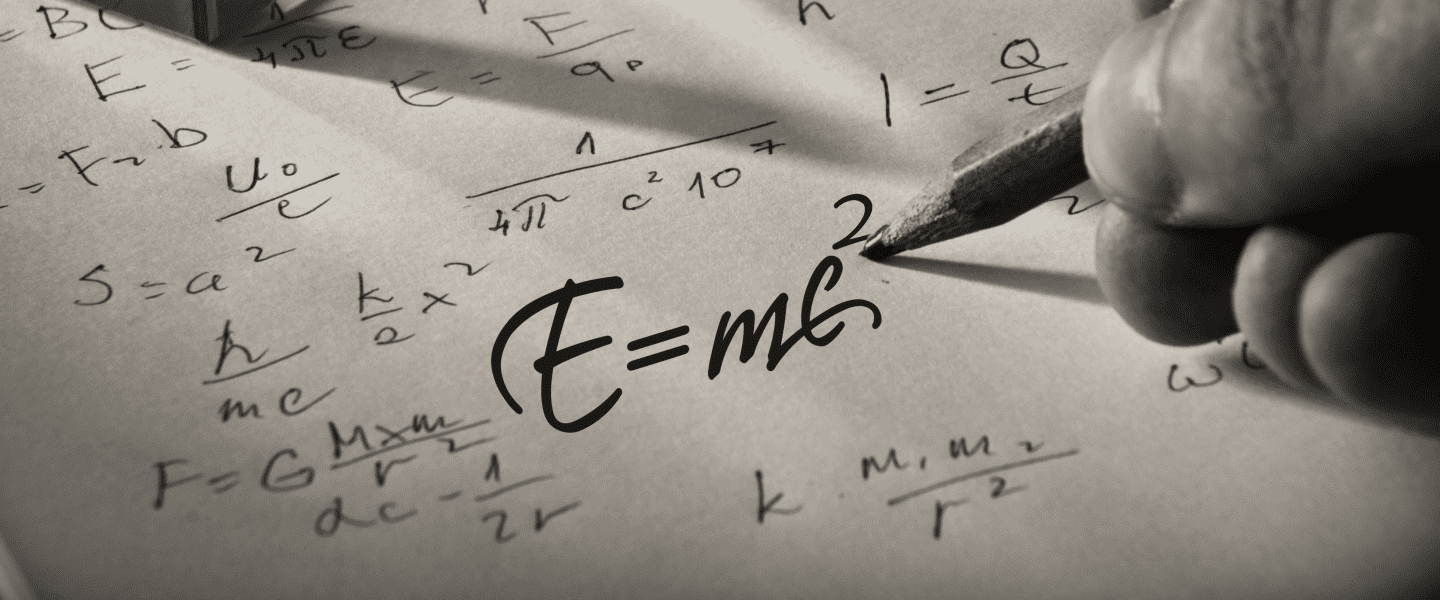 = BC
1
4πε
E =
E = F
q₀
h
I = Q
t
= F~ b
U₀
e
1
4π c² 10⁷
S = a²
k x²
2
E=mc²
h
mc
F = G M×m
r²
dc - 1
2r
k · m₁ m₂
r²
ω